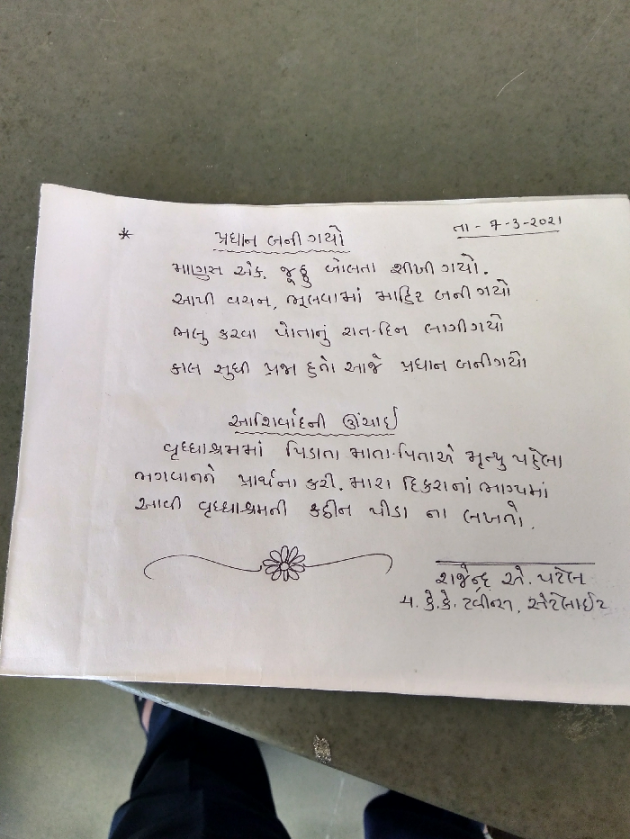 તા - 7-3-2021
* પ્રધાન બની ગયો
માણસ એક જૂઠ્ઠુ બોલતા શીખી ગયો.
આપી વચન, ભૂલવામાં માહિર બની ગયો
ભલુ કરવા પોતાનું રાત-દિન લાગી ગયો
કાલ સુધી પ્રજા હતો આજે પ્રધાન બની ગયો
આશિર્વાદની ઊંચાઈ
વૃધ્ધાશ્રમમાં પિડાતા માતા-પિતાએ મૃત્યુ પહેલા
ભગવાનને પ્રાર્થના કરી. મારા દિકરાનાં ભાગ્યમાં
આવી વૃધ્ધાશ્રમની કઠીન પીડા ના લખતો.
રાજેન્દ્ર એ. પટેલ
કે. કે. ટવીન્સ, સેટેલાઈટ